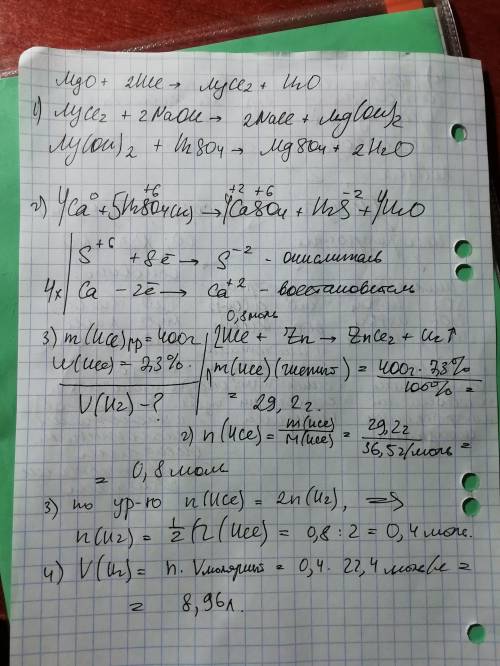 MgO + 2HCl → MgCl₂ + H₂O
1) MgCl₂ + 2NaOH → 2NaCl + Mg(OH)₂
Mg(OH)₂ + H₂SO₄ → MgSO₄ + 2H₂O
2) 4Ca⁰ + 5H₂S⁺⁶O₄(к) → 4Ca⁺²S⁺⁶O₄ + H₂S⁻² + 4H₂O
S⁺⁶ + 8ē → S⁻² - окислитель
4x | Ca - 2ē → Ca⁺² - восстановитель
0,8моль
3) m(HCl)рр = 400г | 2HCl + Zn → ZnCl₂ + H₂↑
W(HCl) = 7,3%. 1) m(HCl)(чистый) = 400г · 7,3% / 100% =
V(H₂) - ? = 29,2г.
2) n(HCl) = m(HCl) / M(HCl) = 29,2г / 36,5г/моль =
= 0,8 моль
3) по ур-ю n(HCl) = 2n(H₂), ⇒
n(H₂) = 1/2 n(HCl) = 0,8 : 2 = 0,4 моль.
4) V(H₂) = n · Vмолярный = 0,4 · 22,4 моль/л =
= 8,96л.